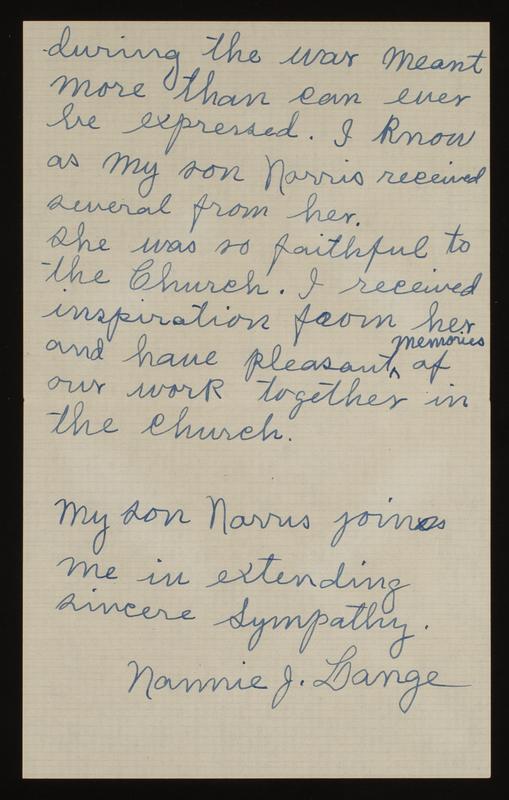 during the war meant
more than can ever
be expressed. I know
as my son Norris received
several from her.
She was so faithful to
the Church. I received
inspiration from her
and have pleasant memories of
our work together in
the church.
My son Norris joins
me in extending
sincere sympathy.
Nannie J. Gange